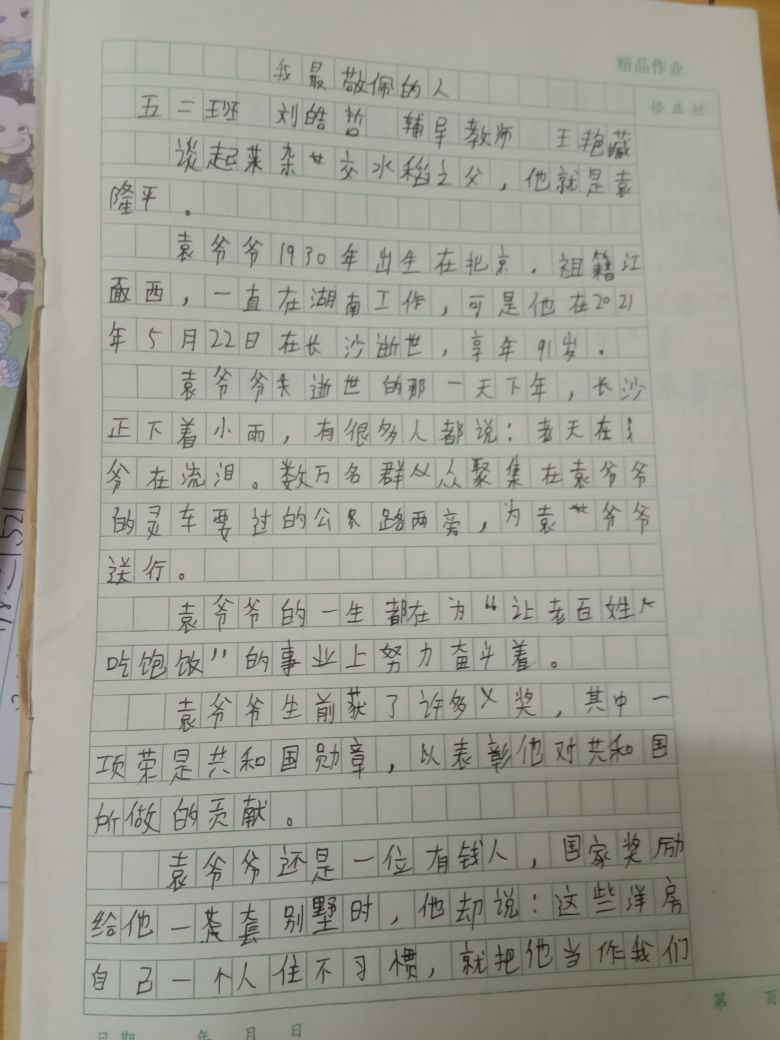 精品作业
修正栏
我最敬佩的人
五二班 刘皓哲 辅导教师 王艳藏
谈起莱杂交水稻之父，他就是袁
隆平。
袁爷爷1930年出生在北京．祖籍江
西，一直在湖南工作，可是他在2021
年5月22日在长沙逝世，享年91岁．
袁爷爷失逝世的那一天下年，长沙
正下着小雨，有很多人都说：老天在
爷在流泪。数万名群从众聚集在袁爷爷
的灵车要过的公路两旁，为袁爷爷
送行。
袁爷爷的一生都在为“让老百姓
吃饱饭”的事业上努力奋斗着。
袁爷爷生前获了许多奖，其中一
项荣是共和国勋章，以表彰他对共和国
所做的贡献。
袁爷爷还是一位有钱人，国家奖励
给他一套别墅时，他却说：这些洋房
自己一个人住不习惯，就把他当作我们
第 页
日期 年 月 日